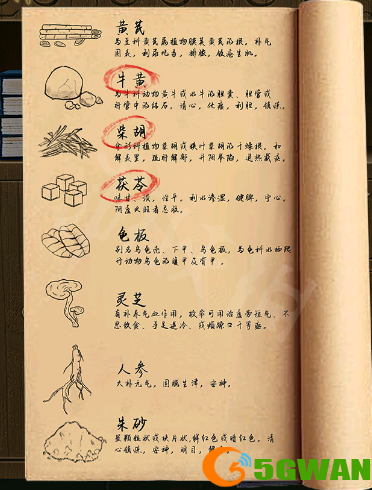 黄芪
为豆科黄芪属植物膜荚黄芪的根，补气
固表，利尿托毒，排脓，敛疮生肌。
牛黄
为牛科动物黄牛或水牛的胆囊，胆管或
肝管中的结石，清心，化痰，利胆，镇惊。
柴胡
伞形科植物柴胡或狭叶柴胡的干燥根，和
解表里，疏肝解郁，升阳举陷，退热截疟。
茯苓
味甘、淡，性平，利水渗湿，健脾，宁心。
阴虚火旺者忌服。
龟板
别名乌龟壳、下甲、乌龟板，为龟科
动物乌龟的腹甲及背甲。
灵芝
有补养气血作用，故常可用治虚劳短气、不
思饮食、手足逆冷、或烦躁口干等症。
人参
大补元气，固脱生津，安神。
朱砂
呈颗粒状或块片状，鲜红色或暗红色，清
心镇惊，安神，明目，
5GWAN